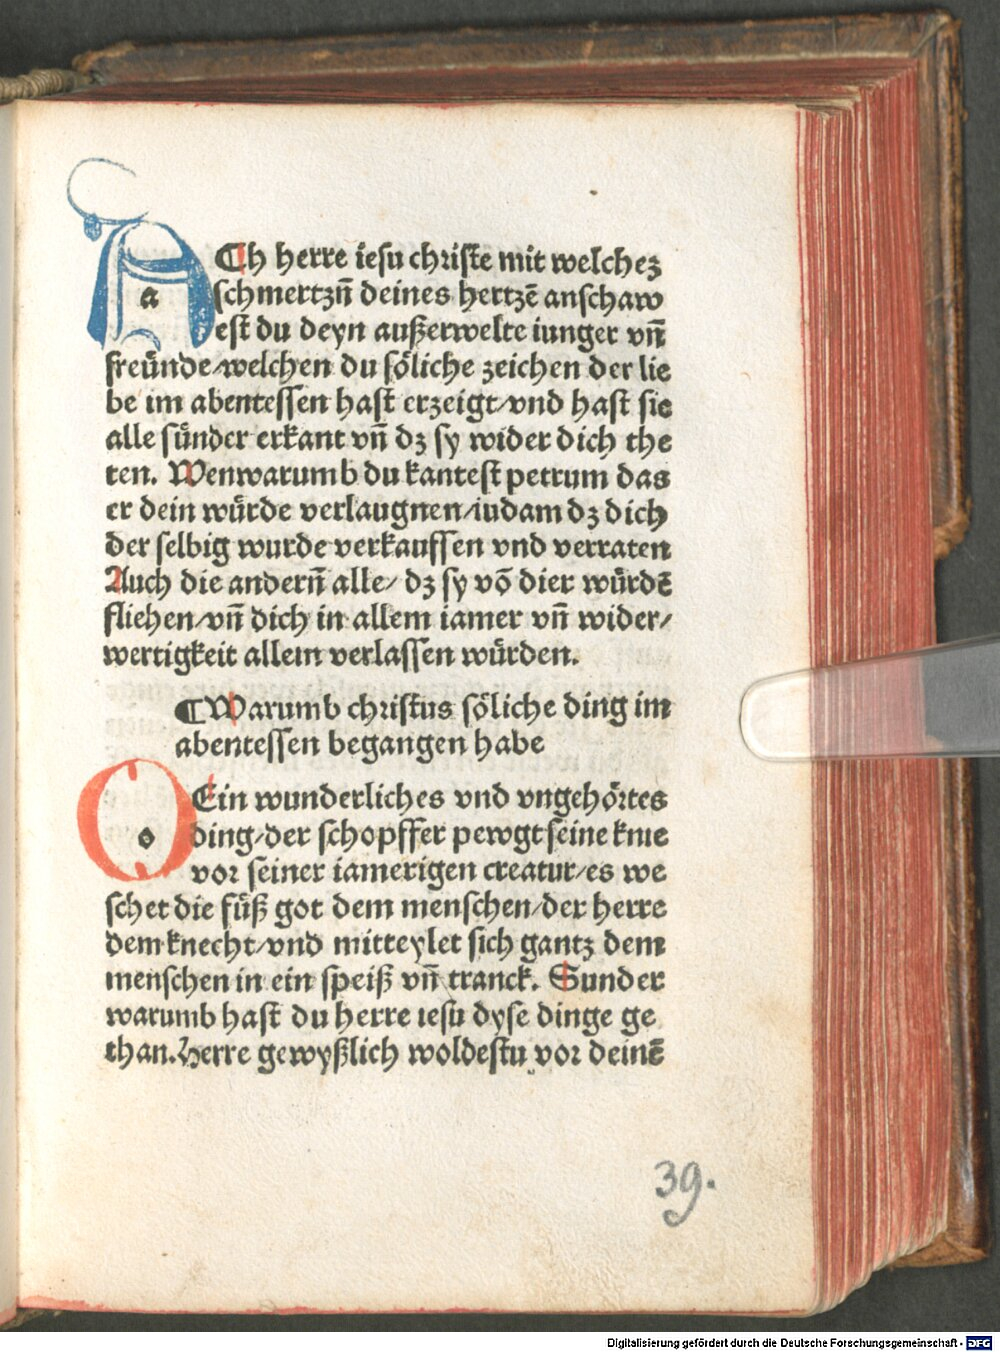 ACh herre iesu christe mit welchez
schmertzn̄ deines hertzē anschaw
est du deyn außerwelte iunger vn̄
freünde/welchen du söliche zeichen der lie
be im abentessen hast erzeigt/vnd hast sie
alle sünder erkant vn̄ dz sy wider dich the
ten. Wenwarumb du kantest petrum das
er dein würde verlaugnen/iudam dz dich
der selbig wurde verkauffen vnd verraten
Auch die andern̄ alle/ dz sy vō dier würdē
fliehen/vn̄ dich in allem iamer vn̄ wider/
wertigkeit allein verlassen würden.
¶Warumb christus söliche ding im
abentessen begangen habe
OEin wunderliches vnd vngehörtes
ding/der schopffer pewgt seine knie
vor seiner iamerigen creatur/es we
schet die füß got dem menschen/der herre
dem knecht/vnd mitteylet sich gantz dem
menschen in ein speiß vn̄ tranck. Sunder
warumb hast du herre iesu dyse dinge ge
than. Herre gewyßlich woldestu vor deinē
39.
Digitalisierung gefördert durch die Deutsche Forschungsgemeinschaft - DFG